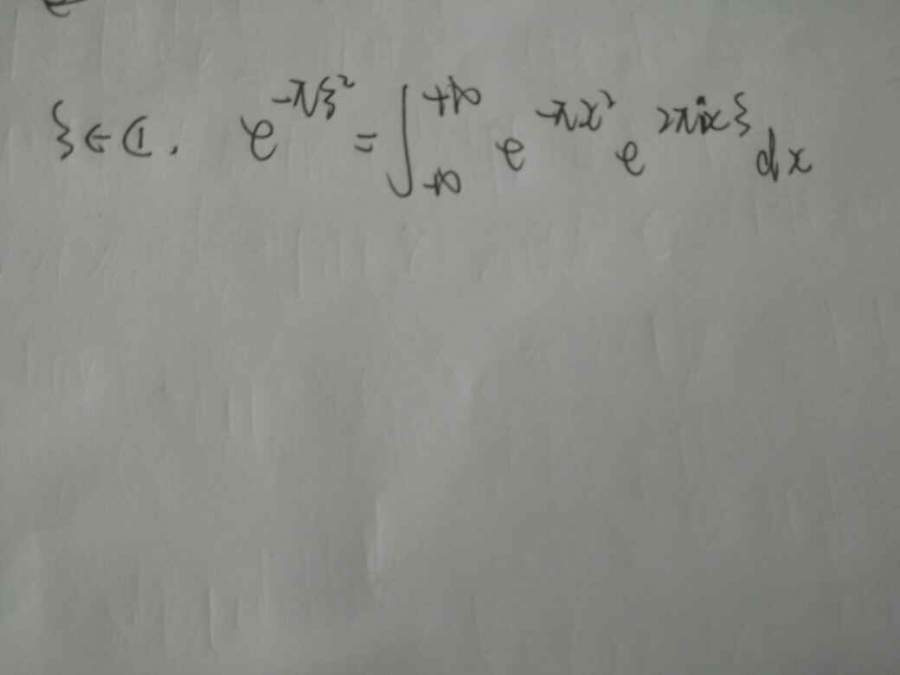 ξ∈ℂ. e^{-πξ²} = ∫_{-∞}^{+∞} e^{-πx²} e^{2πixξ} dx